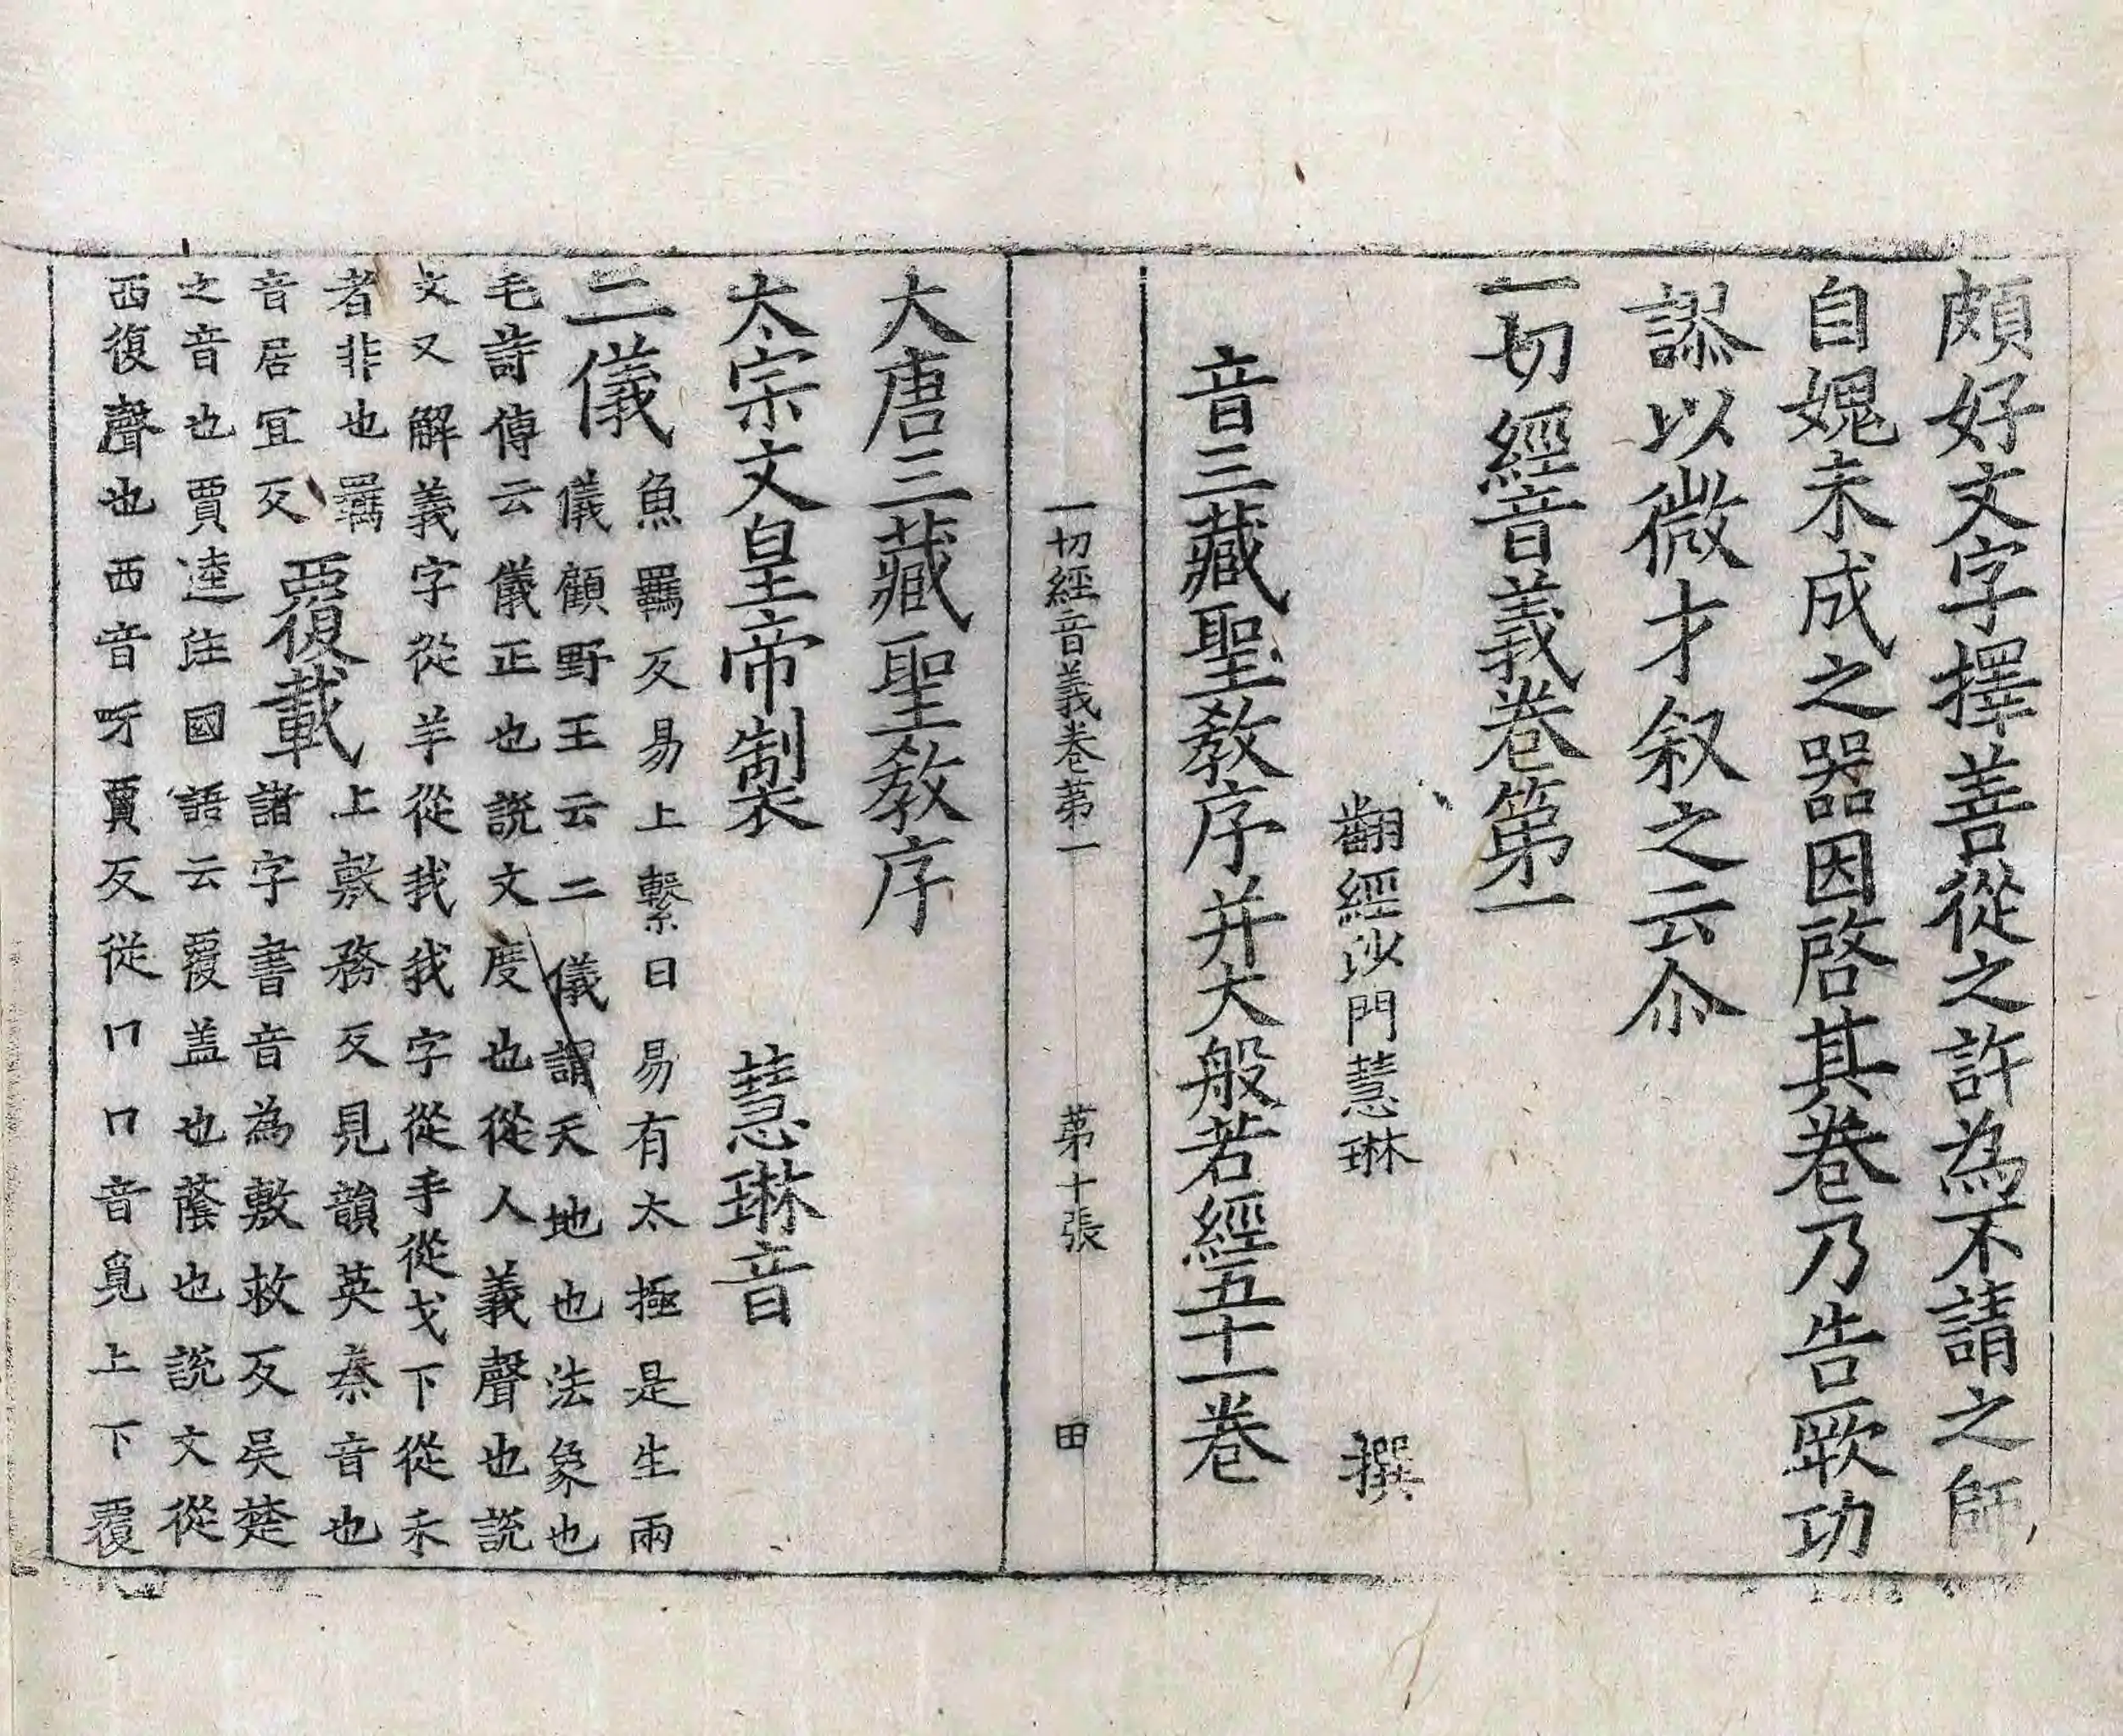 頗好文字擇善從之許為不請之師
自媿未成之器因啓其卷乃告厥功
謬以微才叙之云尒
一切經音義卷第一
翻經沙門慧琳　撰
音三藏聖教序并大般若經五十一卷
一切經音義卷苐一　苐十張　田
大唐三藏聖教序
太宗文皇帝製　慧琳音
二儀
魚羈反易上繫曰易有太極是生兩
儀顧野王云二儀謂天地也法象也
毛詩傳云儀正也說文度也從人義聲也說
文又解義字從羊從我我字從手從戈下從禾
者非也羈
音居宜反
覆載
上敷務反見韻英秦音也
諸字書音為敷救反吳楚
之音也賈逵注國語云覆盖也蔭也說文從
襾復聲也襾音呀賈反從冂冂音覓上下覆